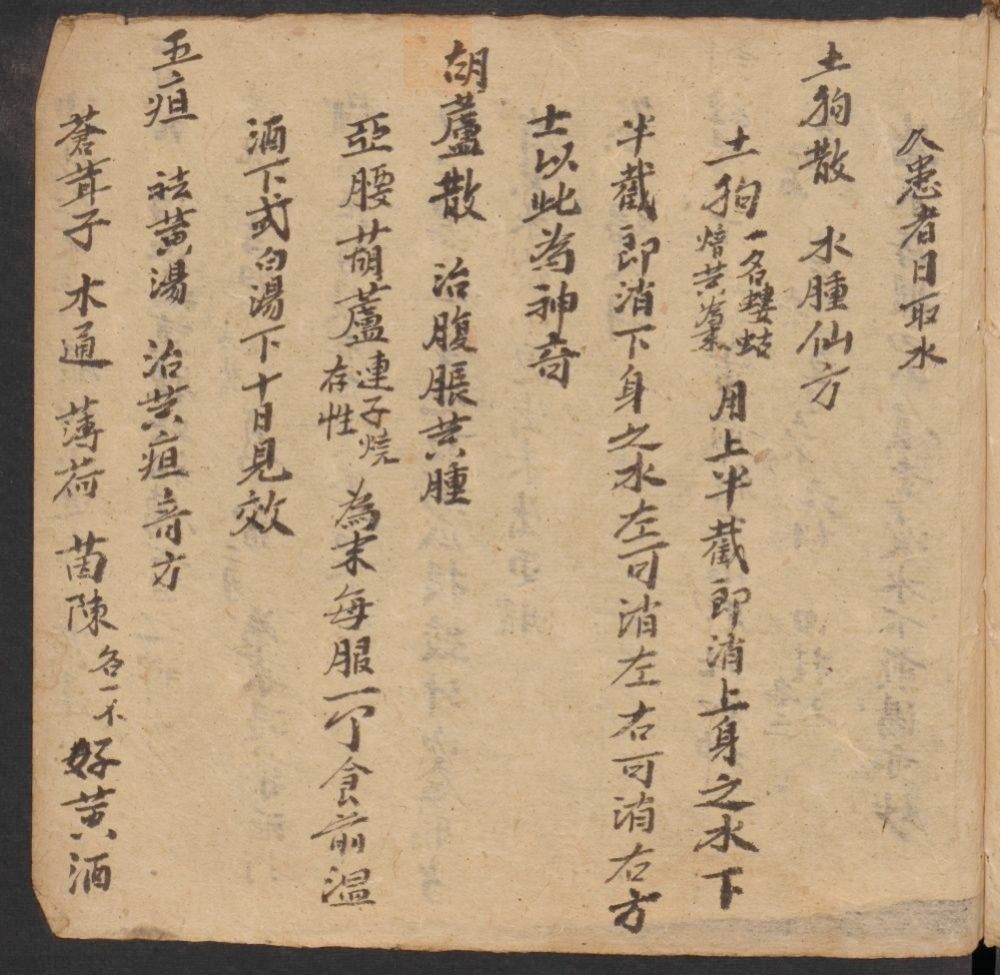 久患者日取水
土狗散 水腫仙方
土狗一名螻蛄焙黄為末 用上半截即消上身之水下
半截即消下身之水左可消左右可消右方
士以此為神奇
胡蘆散 治腹脹黄腫
亞腰葫蘆連子燒存性 為末每服一个食前温
酒下或白湯下十日見效
五疸 祛黄湯 治黄疸奇方
蒼茸子 木通 薄荷 茵陳各一不 好黄酒